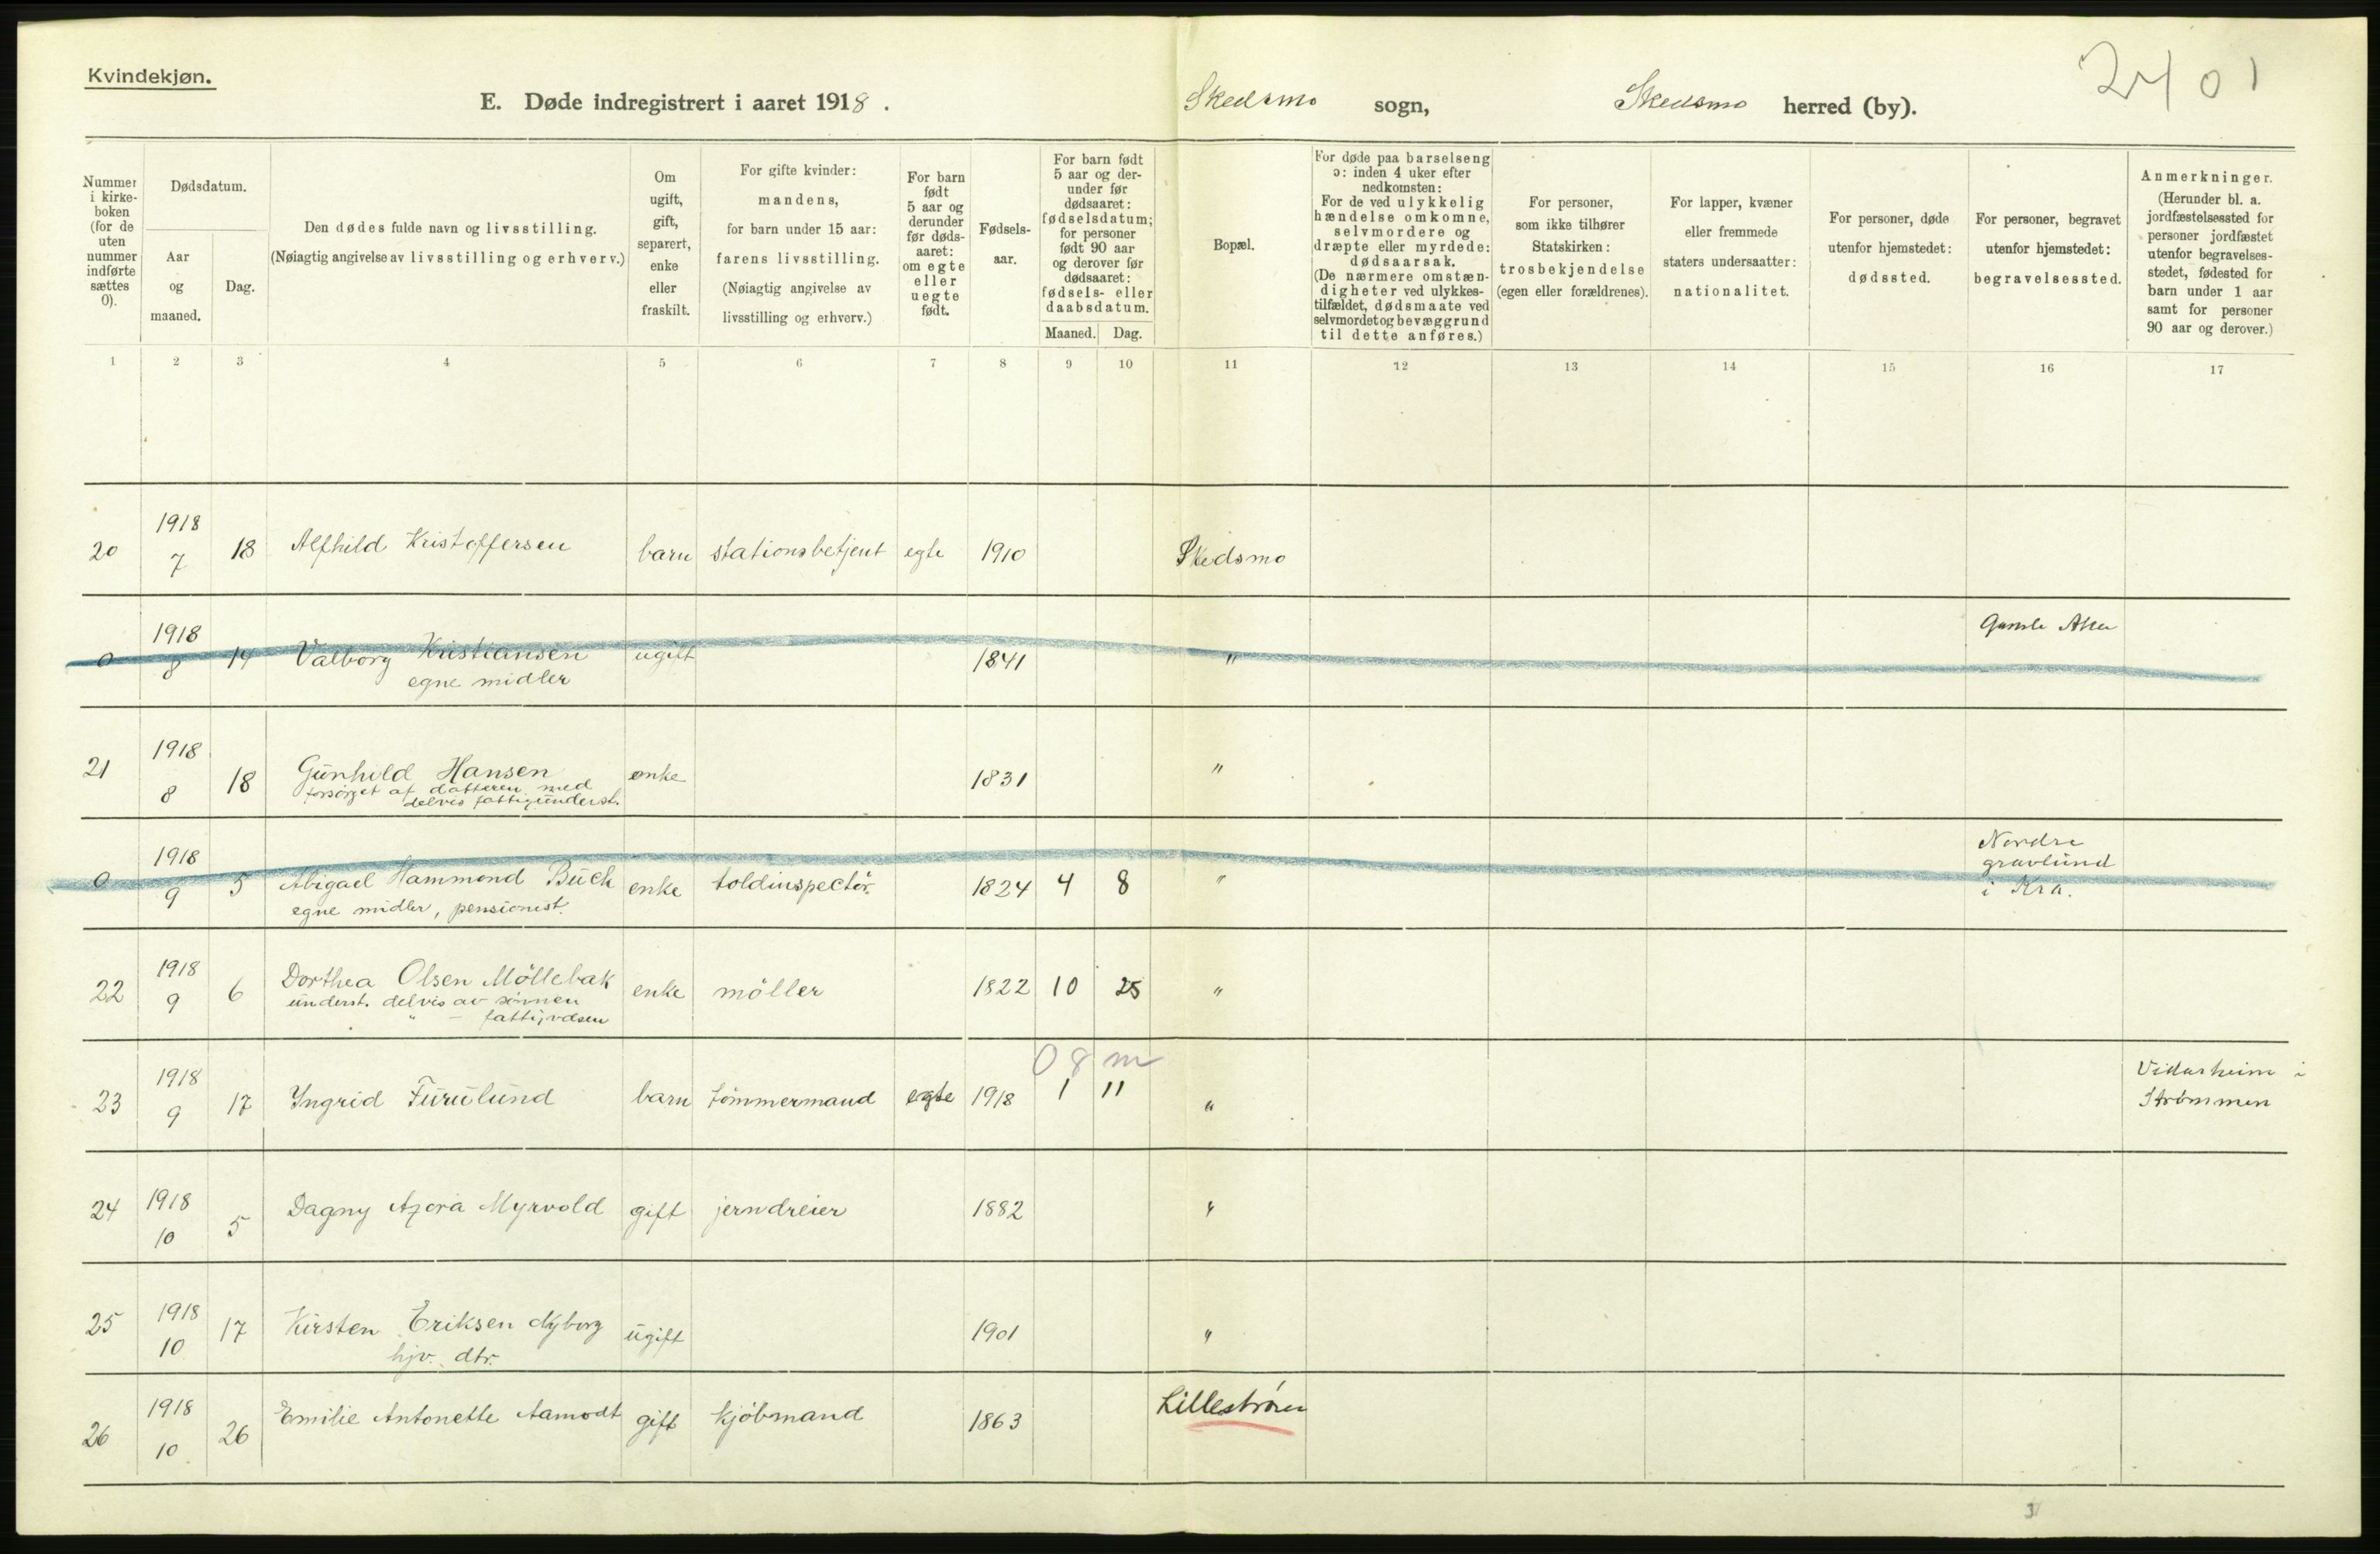 Kvindekjøn.
2401
E. Døde indregistrert i aaret 1918. Skedsmo sogn, Skedsmo herred (by).
Nummer i kirkeboken (for de uten nummer indførte sættes 0).
Dødsdatum.
Aar og maaned.
Dag.
Den dødes fulde navn og livsstilling.
(Nøiagtig angivelse av livsstilling og erhverv.)
Om ugift, gift, separert, enke eller fraskilt.
For gifte kvinder: mandens, for barn under 15 aar: farens livsstilling. (Nøiagtig angivelse av livsstilling og erhverv.)
For barn født 5 aar og derunder før dødsaaret: om egte eller uegte født.
Fødselsaar.
For barn født 5 aar og derunder før dødsaaret: fødselsdatum; for personer født 90 aar og derover før dødsaaret: fødsels- eller daabsdatum.
Maaned. Dag.
Bopæl.
For døde paa barselseng ɔ: inden 4 uker efter nedkomsten: For de ved ulykkelig hændelse omkomne, selvmordere og dræpte eller myrdede: dødsaarsak. (De nærmere omstændigheter ved ulykkestilfældet, dødsmaate ved selvmordet og bevæggrund til dette anføres.)
For personer, som ikke tilhører Statskirken: trosbekjendelse (egen eller forældrenes).
For lapper, kvæner eller fremmede staters undersaatter: nationalitet.
For personer, døde utenfor hjemstedet: dødssted.
For personer, begravet utenfor hjemstedet: begravelsessted.
Anmerkninger. (Herunder bl. a. jordfæstelsessted for personer jordfæstet utenfor begravelsesstedet, fødested for barn under 1 aar samt for personer 90 aar og derover.)
1 2 3 4 5 6 7 8 9 10 11 12 13 14 15 16 17
20 1918 7 18 Alfhild Kristoffersen barn stationsbetjent egte 1910 Skedsmo
0 1918 8 14 Valborg Kristiansen ugift 1841 " Gamle Aker
egne midler
21 1918 8 18 Gunhild Hansen enke 1831 "
forsørget af datteren med
delvis fattigunderst.
0 1918 9 5 Abigael Hammond Buch enke toldinspectör 1824 4 8 " Nordre gravlund i Kra.
egne midler, pensionist.
22 1918 9 6 Dorthea Olsen Möllebak enke möller 1822 10 25 "
underst. delvis av sönnen
" - fattigvæsen
0 8 m
23 1918 9 17 Yngrid Furulund barn tömmermand egte 1918 1 11 " Vidarheim i Strömmen
24 1918 10 5 Dagny Azora Myrvold gift jerndreier 1882 "
25 1918 10 17 Kirsten Eriksen Nyborg ugift 1901 "
hjv. dtr.
26 1918 10 26 Emilie Antonette Aamodt gift kjöbmand 1863 Lilleström
3